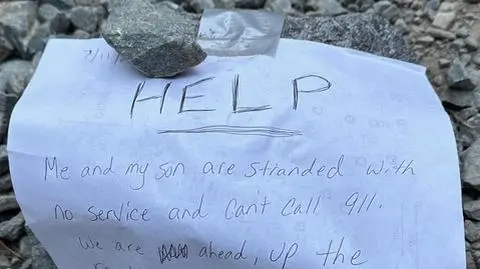 7/11/
HELP
Me and my son are stranded with
no service and can't call 911.
We are ahead, up the